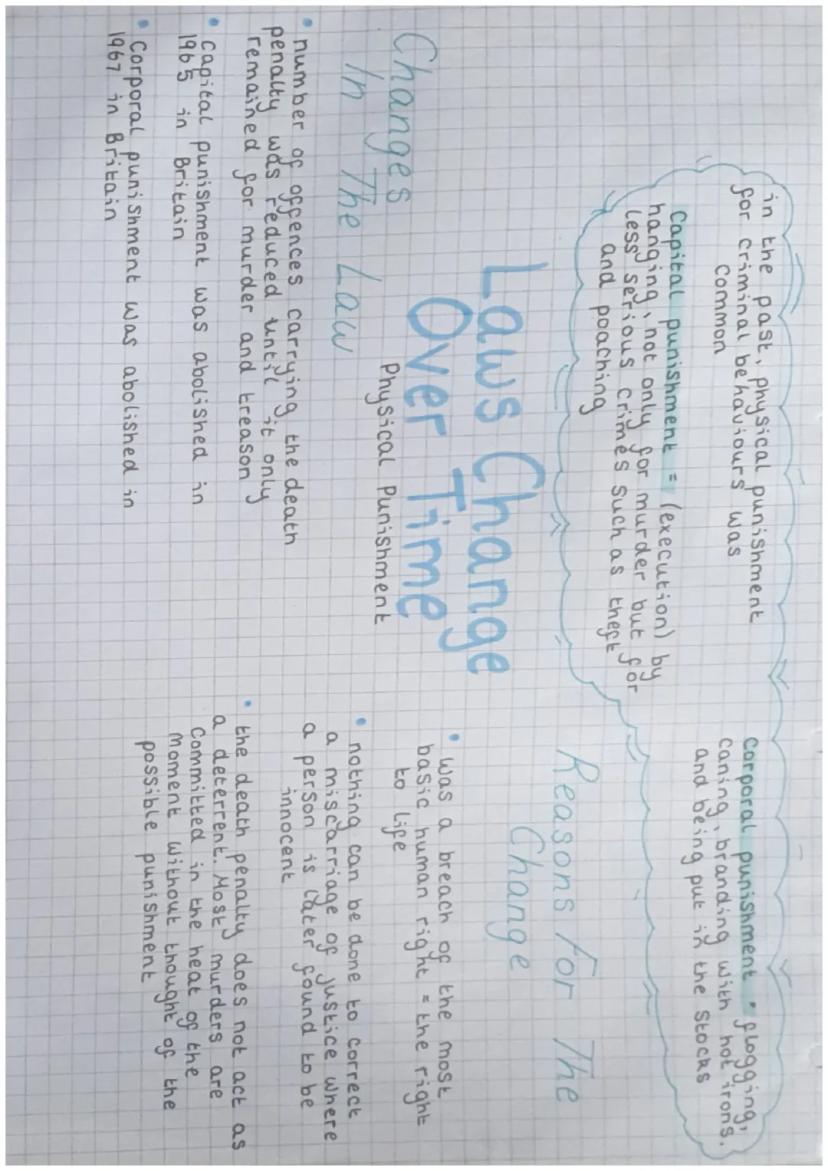 in the past, physical punishment
for criminal behaviours was
common
Capital punishment = (execution) by
hanging, not only for murder but for
less serious crimes such as theft
and poaching
Corporal punishment = flogging,
caning, branding with hot irons,
and being put in the stocks
Laws Change
Over Time
Physical Punishment
Changes
In The Law
• number of offences carrying the death
penalty was reduced until it only
remained for murder and treason
• Capital punishment was abolished in
1965 in Britain
• Corporal punishment was abolished in
1967 in Britain
Reasons For The
Change
• was a breach of the most
basic human right = the right
to life
• nothing can be done to correct
a miscarriage of justice where
a person is later found to be
innocent
• the death penalty does not act as
a deterrent. Most murders are
committed in the heat of the
moment without thought of the
possible punishment